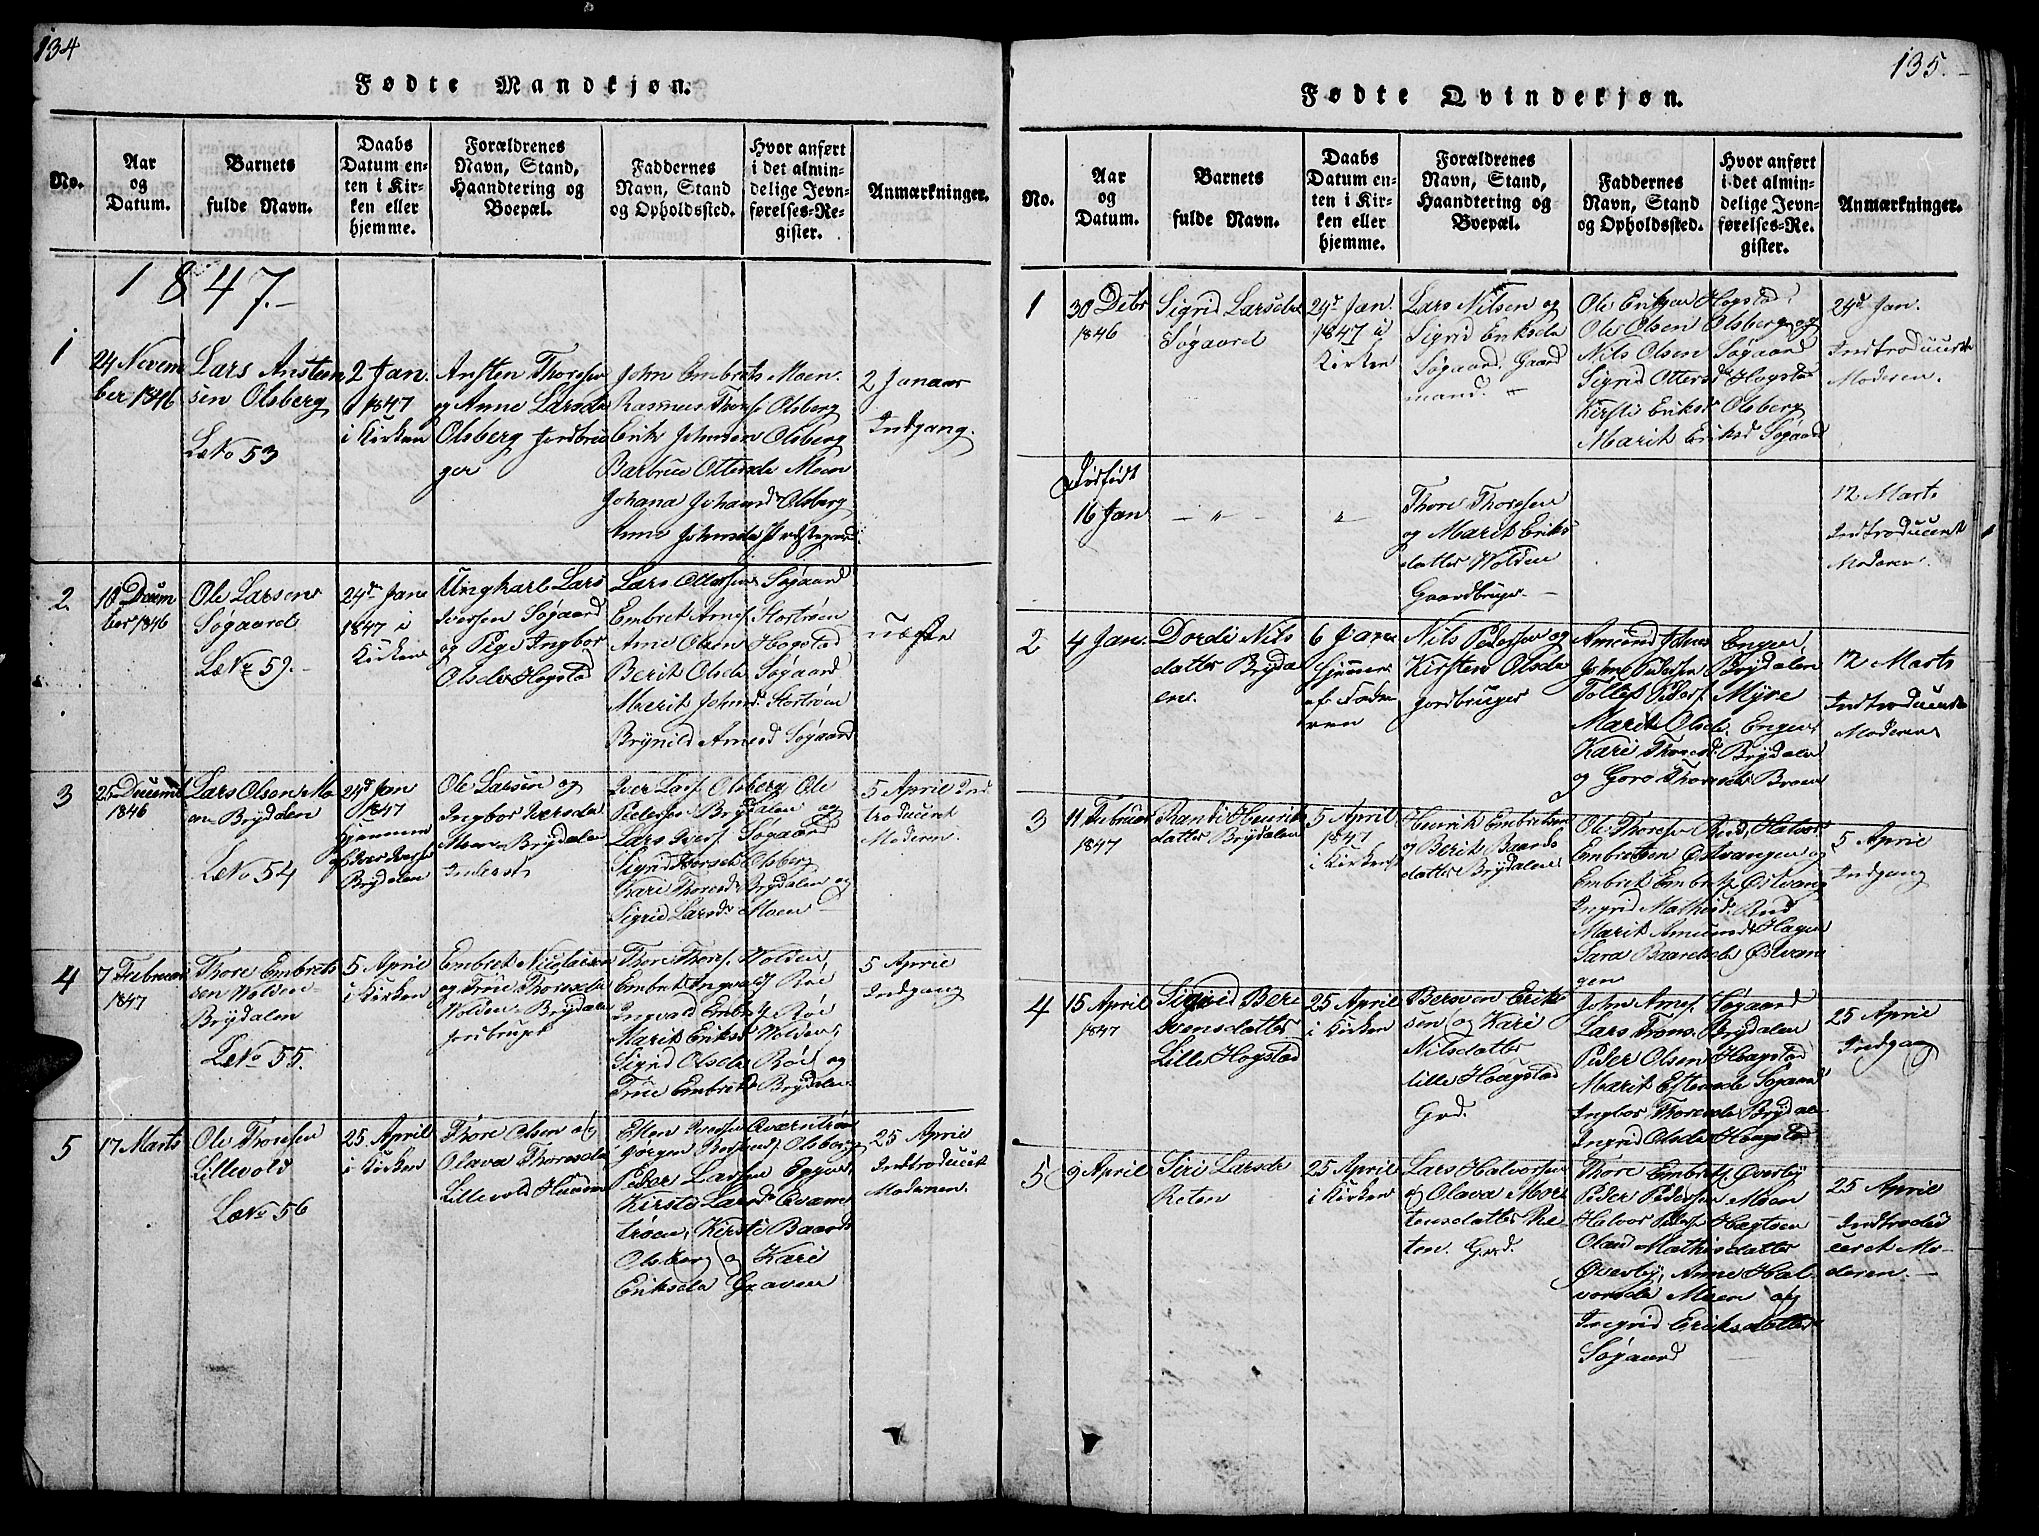 134
Fødte Mandkjøn.
No.
Aar
og
Datum.
Barnets
fulde Navn.
Daabs
Datum en-
ten i Kir-
ken eller
hjemme.
Forældrenes
Navn, Stand,
Haandtering og
Boepæl.
Faddernes
Navn, Stand
og Opholdssted.
Hvor anført
i det almin-
delige Jevn-
førelses-Re-
gister.
Anmærkninger.
1847.-
1
24 Novem
ber 1846
Lars Ansten
sen Olsberg
LæNo 53
2 Jan.
1847
i Kirken
Ansten Thoresen
og Anne Larsda
Olsberg Jordbru
ger
John Embrets Moen.
Rasmus Thoresf Olsberg
Erik Johnsen Olsberg
Barbrue Ottersda Moen
Johana Johannsd Olsberg
Anne Johnsda
2 Januar
Indgang.
2
18 Decem
ber 1846
Ole Larsen
Søgaard
LæNo 59.-
24de Jan
1847 i
Kirken
Ungkarl Lars
Iversen Søgaard
og Pige Ingbor
Olsda Hogstad
Lars Ottersen Søgaard
Embret Arnef. Stortrøen
Arne Olsen Hogstad
Berit Olsda Søgaard
Marit Johnsd. Stortrøen
Brynild Arnesd Søgaard
uægte
3
25 Decemb
1846
Lars Olsen Mo
en Brydalen
LæNo 54
24de Jan
1847
Hjemme
af Iver Iverse
Brydalen
Ole Larsen og
Ingbor Iversda
Moen Brydalen
Inderst
Iver Larsf. Olsberg Ole
Pedersen Brydalen og
Lars Iversf. Søgaard
Sigrid Thoresda Olsberg
Kari Thoresd. Brydalen og
Sigrid Larsd. Moen
5 April In
troduceret
Moderen
4
7 Februar
1847
Thore Embret
sen Wolden
Brydalen
LæNo 55.
5 April
i Kirken
Embret Nicolaisen
og Trine Thoresda
Wolden Brydalen
Jordbruger
Thore Thoresf. Wolden,
Embret Ingvalsf Røe
Ingvald Embrf. Røe
Marit Eriksd Wolden,
Sigrid Olsda Røe og
Trine Embretsd Brydalen
5 April
Indgang
5
17 Marts
Ole Thoresen
Lillevold
LæNo 56
25 April
i Kirken
Thore Olsen og
Olava Thoresda
Lillevold Huusm
Esten Iversen Qværntrøen
Jørgen Olsberg
Peder Larsen Eggen,
Kirsti Larsda Qværn
trøen, Kirsti Baards
Olsberg og Kari
Eriksda Graven
25 April
Indtroduceret
Moderen
135.
Fødte Qvindekjøn.
No.
Aar
og
Datum.
Barnets
fulde Navn.
Daabs
Datum en-
ten i Kir-
ken eller
hjemme.
Forældrenes
Navn, Stand,
Haandtering og
Boepæl.
Faddernes
Navn, Stand
og Opholdssted.
Hvor anført
i det almin-
delige Jevn-
førelses-Re-
gister.
Anmærkninger.
1
30 Debr
1846
Sigrid Larsda
Søgaard
24de Jan
1847 i
Kirken
Lars Nilsen og
Sigrid Eriksda
Søgaard, Gaard
mand.
Ole Eriksen Hogstad,
Ole Olsen Olsberg og
Nils Olsen Søgaard
Sigrid Ottersda Hogstad
Kirsti Eriksd Olsberg
Marit Eriksd Søgaard
24de Jan.
Indtroduceret
Moderen.
Dødfødt
16 Jan
- " -
"
Thore Thoresen
og Marit Eriks
datter Wolden
Gaardbruger. -
12 Marts
Indtroduceret
Moderen.
2
4 Jan.
Dordi Nils
datter Bryda
len.
6 Jan
Hjemme
af Fade
ren
Nils Pedersen og
Kirsten Olsda
Jordbruger
Amund Johns Engen,
John Pedersen Brydalen
Tollef Pedersf. Myre
Marit Olsda. Engen
Kari Thoresd. Brydalen
og Goro Thoresda Broen
12 Marts
Indtroduceret
Moderen
3
11 Februar
1847
Randi Henrik
datter Brydalen
5 April
1847
i Kirken
Henrik Embretsen
og Berit Baards
datter Brydalen
Ole Thoresen Rud, Halvor
Embretsen Østvangen og
Embret Embretsf. Østvang
Ingrid Mathisd. Rud
Marit Amundsd. Hagen
Sara Baardsda Østvan
gen
5 April
Indgang
4
15 April
1847
Sigrid Ber
svensdatter
Lille Hogstad
25 April
i Kirken
Bersven Erik
sen og Kari
Nilsdatter
lille Hoagstad
Grd.
John Arnef. Søgaard
Lars Trons. Brydalen
Peder Olsen Hoagstad
Marit Estensda Søgaard
Ingbor Thoresda Brydale
Ingrid Olsda Hoagstad
25 April
Indgang
5
9 April
Siri Larsda
Reten
25 April
i Kirken
Lars Halvorsen
og Olava Mor
tensdatter Re
ten. Grd.
Thore Embretsf. Øverby
Peder Pedersen Moen
Halvor Pedersf.
Olaud Mathisdatter
Øverby, Anne Hal
vorsda Moen og
Ingrid Eriksdatter
Søgaard
25 April
Indtrodu
ceret Mo-
deren. -